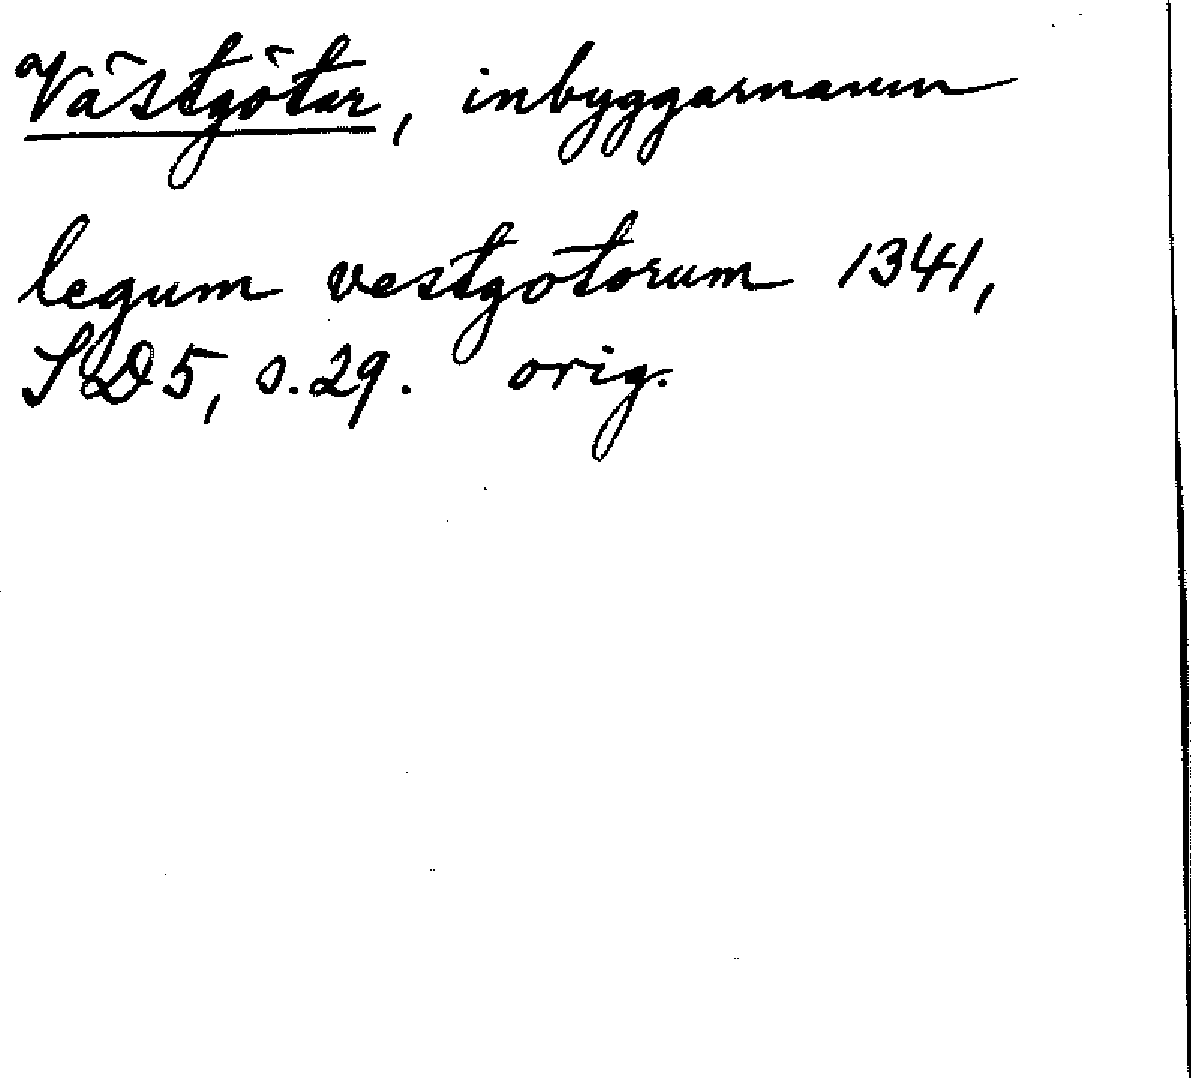 Västgötar, inbyggarnamn
legum vestgotorum 1341,
SD 5, s. 29. orig.